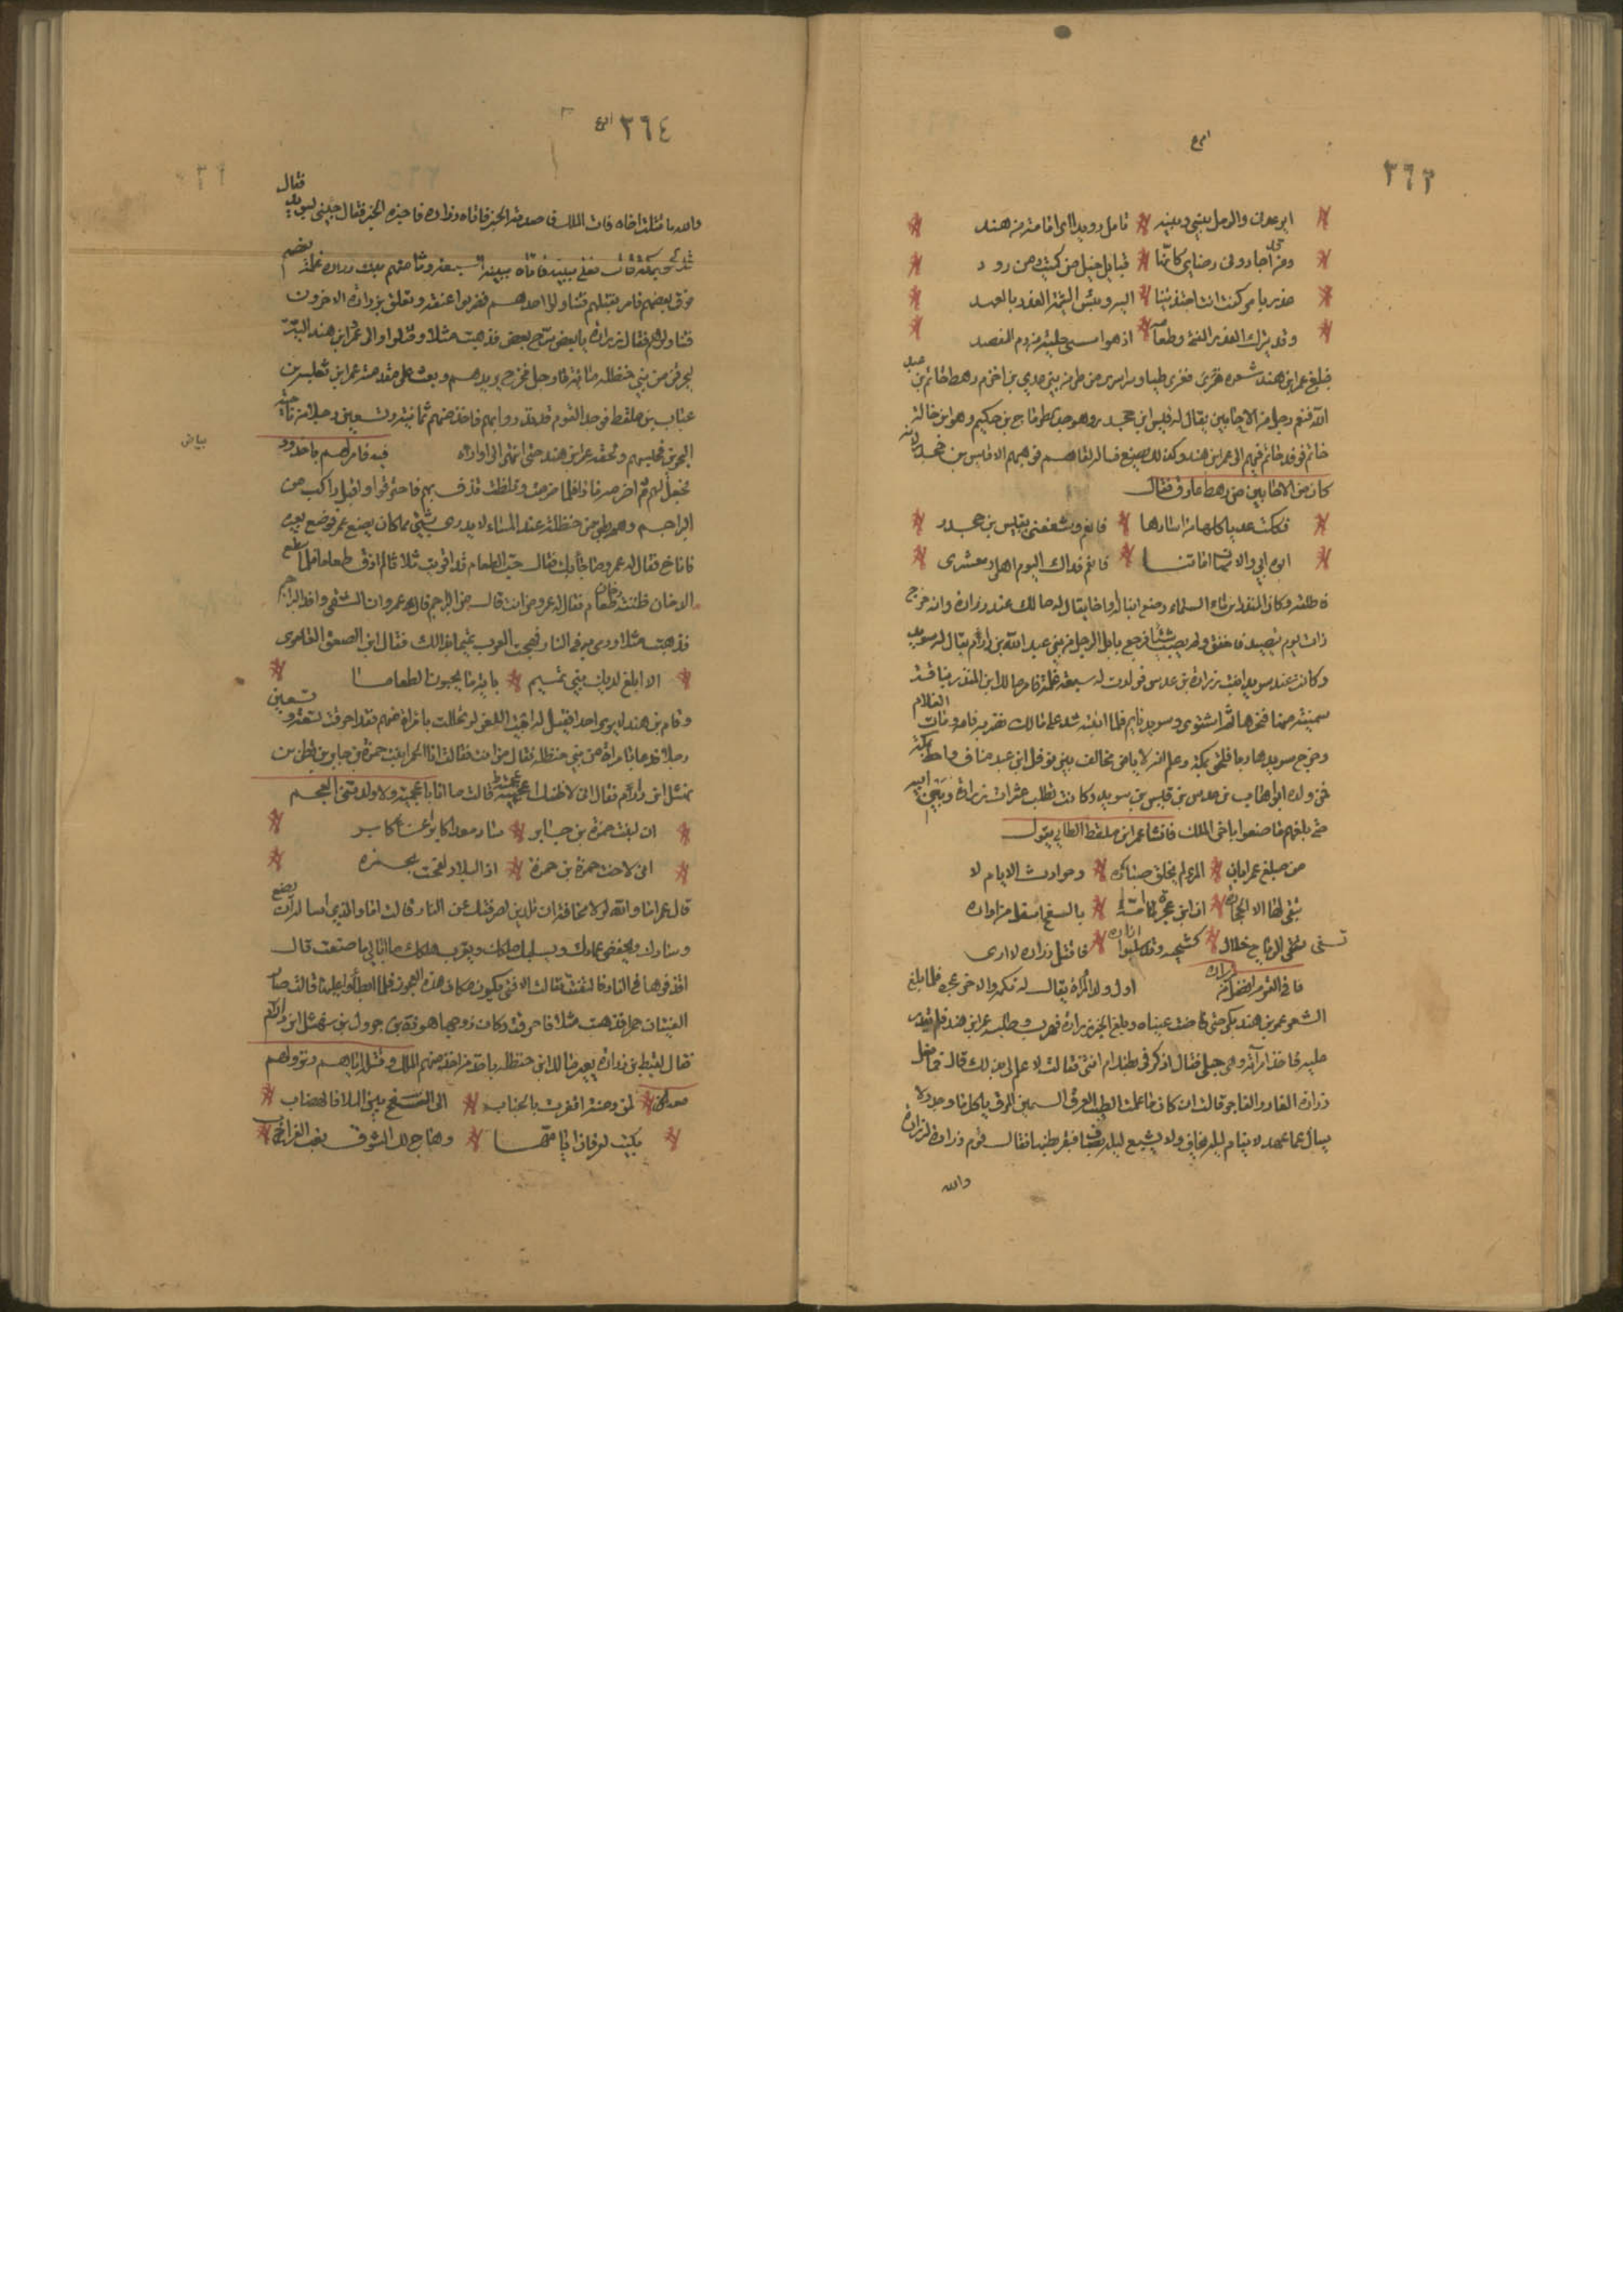 ٣٦٣
ايوعدنى والرمل بينى وبينه تامل رويدا ما امامة من هند
ومن اجا دونى رضاى كانها قبايل خيل من كميت ومن ورد
غدرت بامر كنت انت اجتذبتنا اليه وبئس الشيمة الغدر بالعهد
وقد يترك الغدر الفتى وطعامه اذ هو امسى حلبة من دم الفصد
فبلغ عمرابن هند شعره هذا فغزى طيا من بنى عدي بن اخزم رهط حاتم بن عبد
الله رجل من الاجايين يقال له قيس ابن جحدر وهو جد الطرماح بن حكيم وهو ابن خالة
حاتم فوفد حاتم فيهم الى عمرابن هند وكذلك فوهبهم الا قيس بن جحدر لانه
كان من الاجايين من رهط عارق فقال
فككت عديا كلها من اسارها فانعم وشفعنى بقيس بن جحدر
ابوه ابى والامهات امهاتنا فانعم فداك اليوم اهلى ومعشرى
فاطلقه وكان المنذر بن ماء السماء وضع ابنا له يقال له مالك عند زرارة وانه خرج
ذات يوم يتصيد فاخفق ولم يصب شيئا فرجع بابل لرجل من بنى عبد الله بن دارم يقال له سويد
وكانت عند سويد ابنت زرارة بن عدس فولدت له سبعة غلمة فامر مالك ابن المنذر بناقة
سمينة منها فنحرها ثم اشتوى وسويد نايم فلما انتبه شد على مالك فضربه فامه ومات الغلام
وخرج سويد هاربا فلحق بمكة وعلم انه لا يامن فحالف بنى نوفل ابن عبد مناف واختط بمكة
فمن ولده ابو اهاب بن قيس بن سويد وكانت تطلب عثرات زرارة وبنى ابيه
حتى بلغهم ما صنعوا باخى الملك فانشا عمرابن ملقط الطايى يقول
من مبلغ عمرا بان المرء لم يخلق صباره وحوادث الايام لا
يبقى لها الا الحجاره ان ابن عجزة امه بالسفح اسفل من اواره
تسفى الرياح خلال كشحيه وقد سلبوا ازاره فاقتل زرارة لا ارى
فى القوم افضل من زراره اول ولد المراة يقال له بكره والاخر عجزه فلما بلغ
الشعر عمروبن هند بكى حتى فاضت عيناه وبلغ الخبر زرارة فهرب وطلبه عمرابن هند فلم يقدر
عليه فاخذ امراته وهى حبلى فقال اذكر فى بطنك ام انثى فقالت لا علم لى بذلك قال ما فعل
زرارة الغادر الفاجر قالت ان كان ما علمت الطيب العرق السمين المرق ياكل ما وجد ولا
يسال عما عهد لا ينام ليلة يخاف ولا يشبع ليلة يضاف فبقر بطنها فقال قوم زرارة لزرارة
والله
٣٦٤
والله ما قتلت اخاه فات الملك فاصدقه الخبر فاتاه زراره فاخبره الخبر فقال جئنى بسويد فقال
قد لحق بمكة قال فعلى ببنيه فاتاه ببنيه وهم غلمة بعضهم
فوق بعضهم فامر بقتلهم فتناولوا احدهم فضربوا عنقه وتعلق بزرارة الاخرون
فتناولوهم فقال زرارة يا بعضى سرح بعض فذهبت مثلا وقتلوا والى عمرو ابن هند الية
ليحرقن من بنى حنظله مائة رجل فخرج يريدهم وبعث على مقدمته عمرابن ثعلبه بن
عتاب بن ملقط فوجد القوم قد فاخذ منهم ثمانية وتسعين رجلا من ناحية
البحرين فحبسهم ولحقه عمرابن هند حتى انتهى الى اواراه فيه فامر لهم باخدود
بياض
فخد لهم ثم اضرمه نارا فلما وتلظت قذف بهم فاحترقوا واقبل راكب من
البراجم وهم بطن من حنظلة عند المساء لا يدرى بشئ مما كان يصنع عمر فوضع بعيره
فاناخ فقال له عمرو ما جاء بك فقال حب الطعام قد اقويت ثلاثا لم اذق طعاما فلما سطع
الدخان ظننته دخان طعام فقال له عمرو ممن انت قال من البراجم قال عمرو ان الشقى وافد البراجم
فذهبت مثلا ورمى به فى النار فهجت العرب تميما بذلك فقال ابن الصعق العامرى
الا ابلغ لديك بنى تميم باية ما يحبون الطعاما
واقام بن هند لا يرى احدا فقيل له ابيت اللعن لو تحللت بامراة منهم فقد احرقت تسعة وتسعين
رجلا فدعا بامراة من بنى حنظله فقال من انت فقالت انا الحمرا بنت حمزة بن جابر بن قطن بن
نهشل ابن دارم فقال انى لاظنك اعجمية قالت ما انا باعجمية ولا ولدتنى العجم
انى لبنت حمزة بن جابر ساد معدا كابرا عن كابر
انى لاخت حمزة بن حمزة اذا البلاد لفحت بجمره
قال عمر اما والله لولا مخافة ان تلدى مثلك لصرفتك عن النار قالت اما والذى اساله ان يضع
وسادك ويخفض عمادك ويسلبك ملكك ويقرب هلكك ما ابالى ما صنعت قال
اقذفوها فى النار فالتفتت فقالت الا فتى يكون مكان هذه العجوز فلما ابطأوا عليها قالت صار
الفتيان حمما فذهبت مثلا فاحرقت وكان زوجها هوذة بن جرول بن نهشل ابن دارم
فقال لقيط بن زرارة يعير مالك ابن حنظله باخذ من اخذ منهم الملك وقتله اياهم ونزولهم
معه لمن دمنة اقفرت بالجناب الى السفح بين الملا فالهضاب
بكيت لعرفان اياتها وهاج لك الشوق نعب الغراب